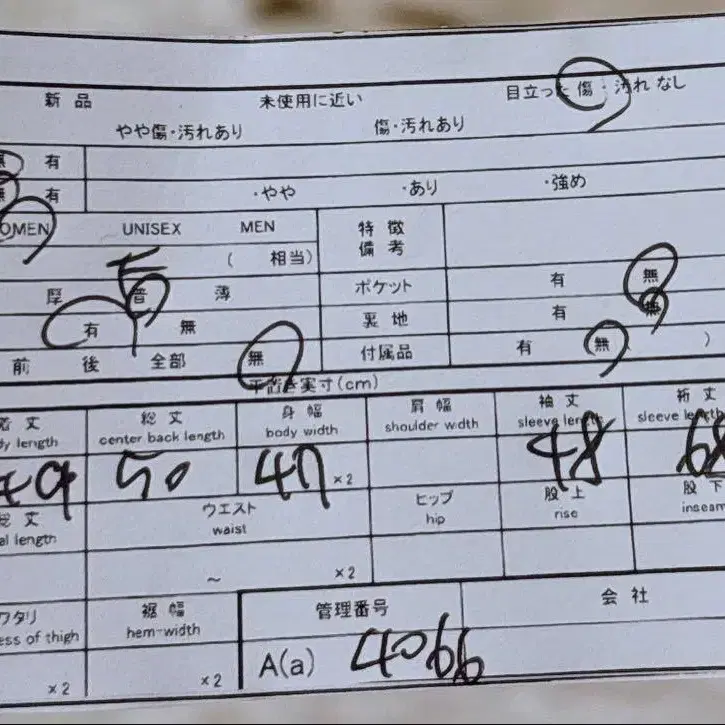 新品 未使用に近い 目立った傷・汚れなし
やや傷・汚れあり 傷・汚れあり
無 有
無 有 ・やや ・あり ・強め
OMEN UNISEX MEN 特徴
備考
( 相当)
厚 普 薄 ポケット 有 無
有 無 裏地 有 無
前 後 全部 無 付属品 有 無 )
平置き実寸(cm)
着丈 総丈 身幅 肩幅 袖丈 裄丈
dy length center back length body width shoulder width sleeve length sleeve length
49 50 47 ×2 48 68
総丈 ウエスト ヒップ 股上 股下
al length waist hip rise inseam
～ ×2
ワタリ 裾幅 管理番号 会社
ess of thigh hem-width
×2 ×2 A(a) 4066